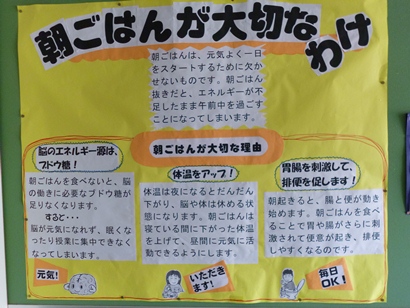 朝ごはんが大切な
わけ
朝ごはんは、元気よく一日
をスタートするために欠か
せないものです。朝ごはん
抜きだと、エネルギーが不
足したまま午前中を過ごす
ことになってしまいます。
朝ごはんが大切な理由
脳のエネルギー源は、
ブドウ糖！
朝ごはんを食べないと、脳
の働きに必要なブドウ糖が
足りなくなります。
すると・・・
脳が元気になれず、眠くな
ったり授業に集中できなく
なってしまいます。
体温をアップ！
体温は夜になるとだんだん
下がり、脳や体は休める状
態になります。朝ごはんは
寝ている間に下がった体温
を上げて、昼間に元気に活
動できるようにします。
胃腸を刺激して、
排便を促します！
朝起きると、腸と便が動き
始めます。朝ごはんを食べ
ることで胃や腸がさらに刺
激されて便意が起き、排便
しやすくなるのです。
元気！
いただき
ます！
毎日
OK！